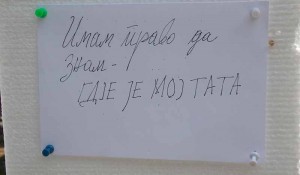 Имам право да
знам-
ГДЈЕ ЈЕ МОЈ ТАТА